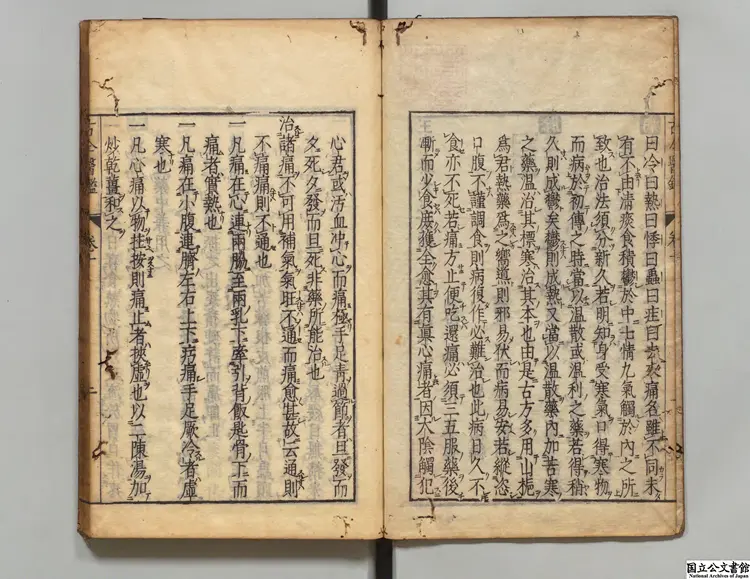 曰冷曰熱曰悸曰蟲曰疰曰去來痛名雖不同未
有不由清痰食積鬱於中七情九氣觸於內之所
致也治法須分新久若明知身受寒氣口得寒物
而病於初傳之時當以溫散或溫利之藥若得稍
久則成鬱矣鬱則成熱又當以溫散藥內加苦寒
之藥溫治其標寒治其本也由是古方多用山梔
爲君熱藥爲之嚮導則邪易伏而病易安若縱恣
口腹不謹調食則病復作必難治也此病日久不
食亦不死若痛方止便吃還痛必須三五服藥後
漸而少食庶獲全愈其有真心痛者因大陰觸犯
心君或汚血冲心而痛極手足青過節者旦發而
夕死夕發而旦死非藥所能治也
治諸痛不可用補氣氣旺不通而痛愈甚故云通則
不痛痛則不通也
一凡痛在心連兩脇至兩乳下牽引背板匙骨下而
痛者實熱也
一凡痛在小腹連臍左右上下疞痛手足厥冷者虛
寒也
一凡心痛以物拄按則痛止者挾虛也以二陳湯加
炒乾薑和之
古今醫鑑 卷十
国立公文書館
National Archives of Japan